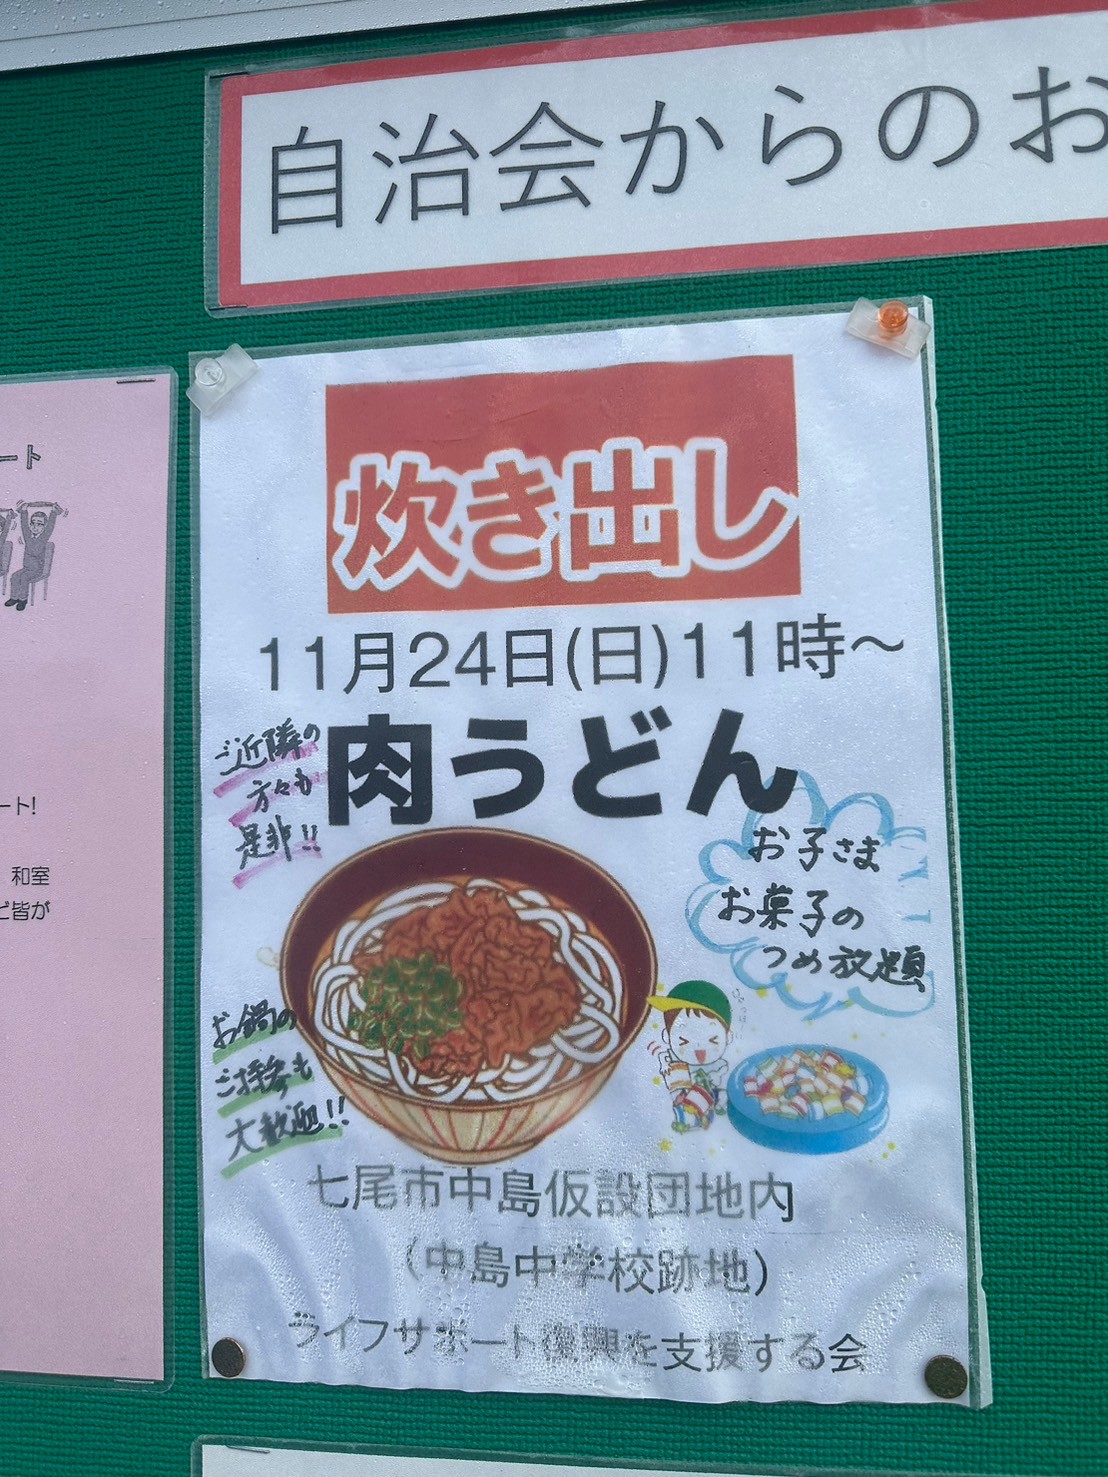 自治会からのお
炊き出し
11月24日(日)11時～
肉うどん
ご近隣の
方々も
是非!!
お子さま
お菓子の
つめ放題
お鍋の
ご持参も
大歓迎!!
七尾市中島仮設団地内
(中島中学校跡地)
ライフサポート復興を支援する会
ート
ート!
和室
ど皆が